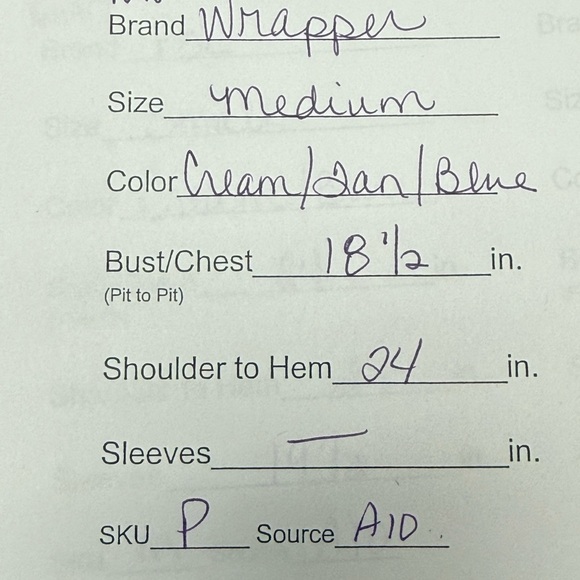 Brand Wrapper
Size Medium
Color Cream/Tan/Blue
Bust/Chest 18 1/2 in.
(Pit to Pit)
Shoulder to Hem 24 in.
Sleeves — in.
SKU P Source A10